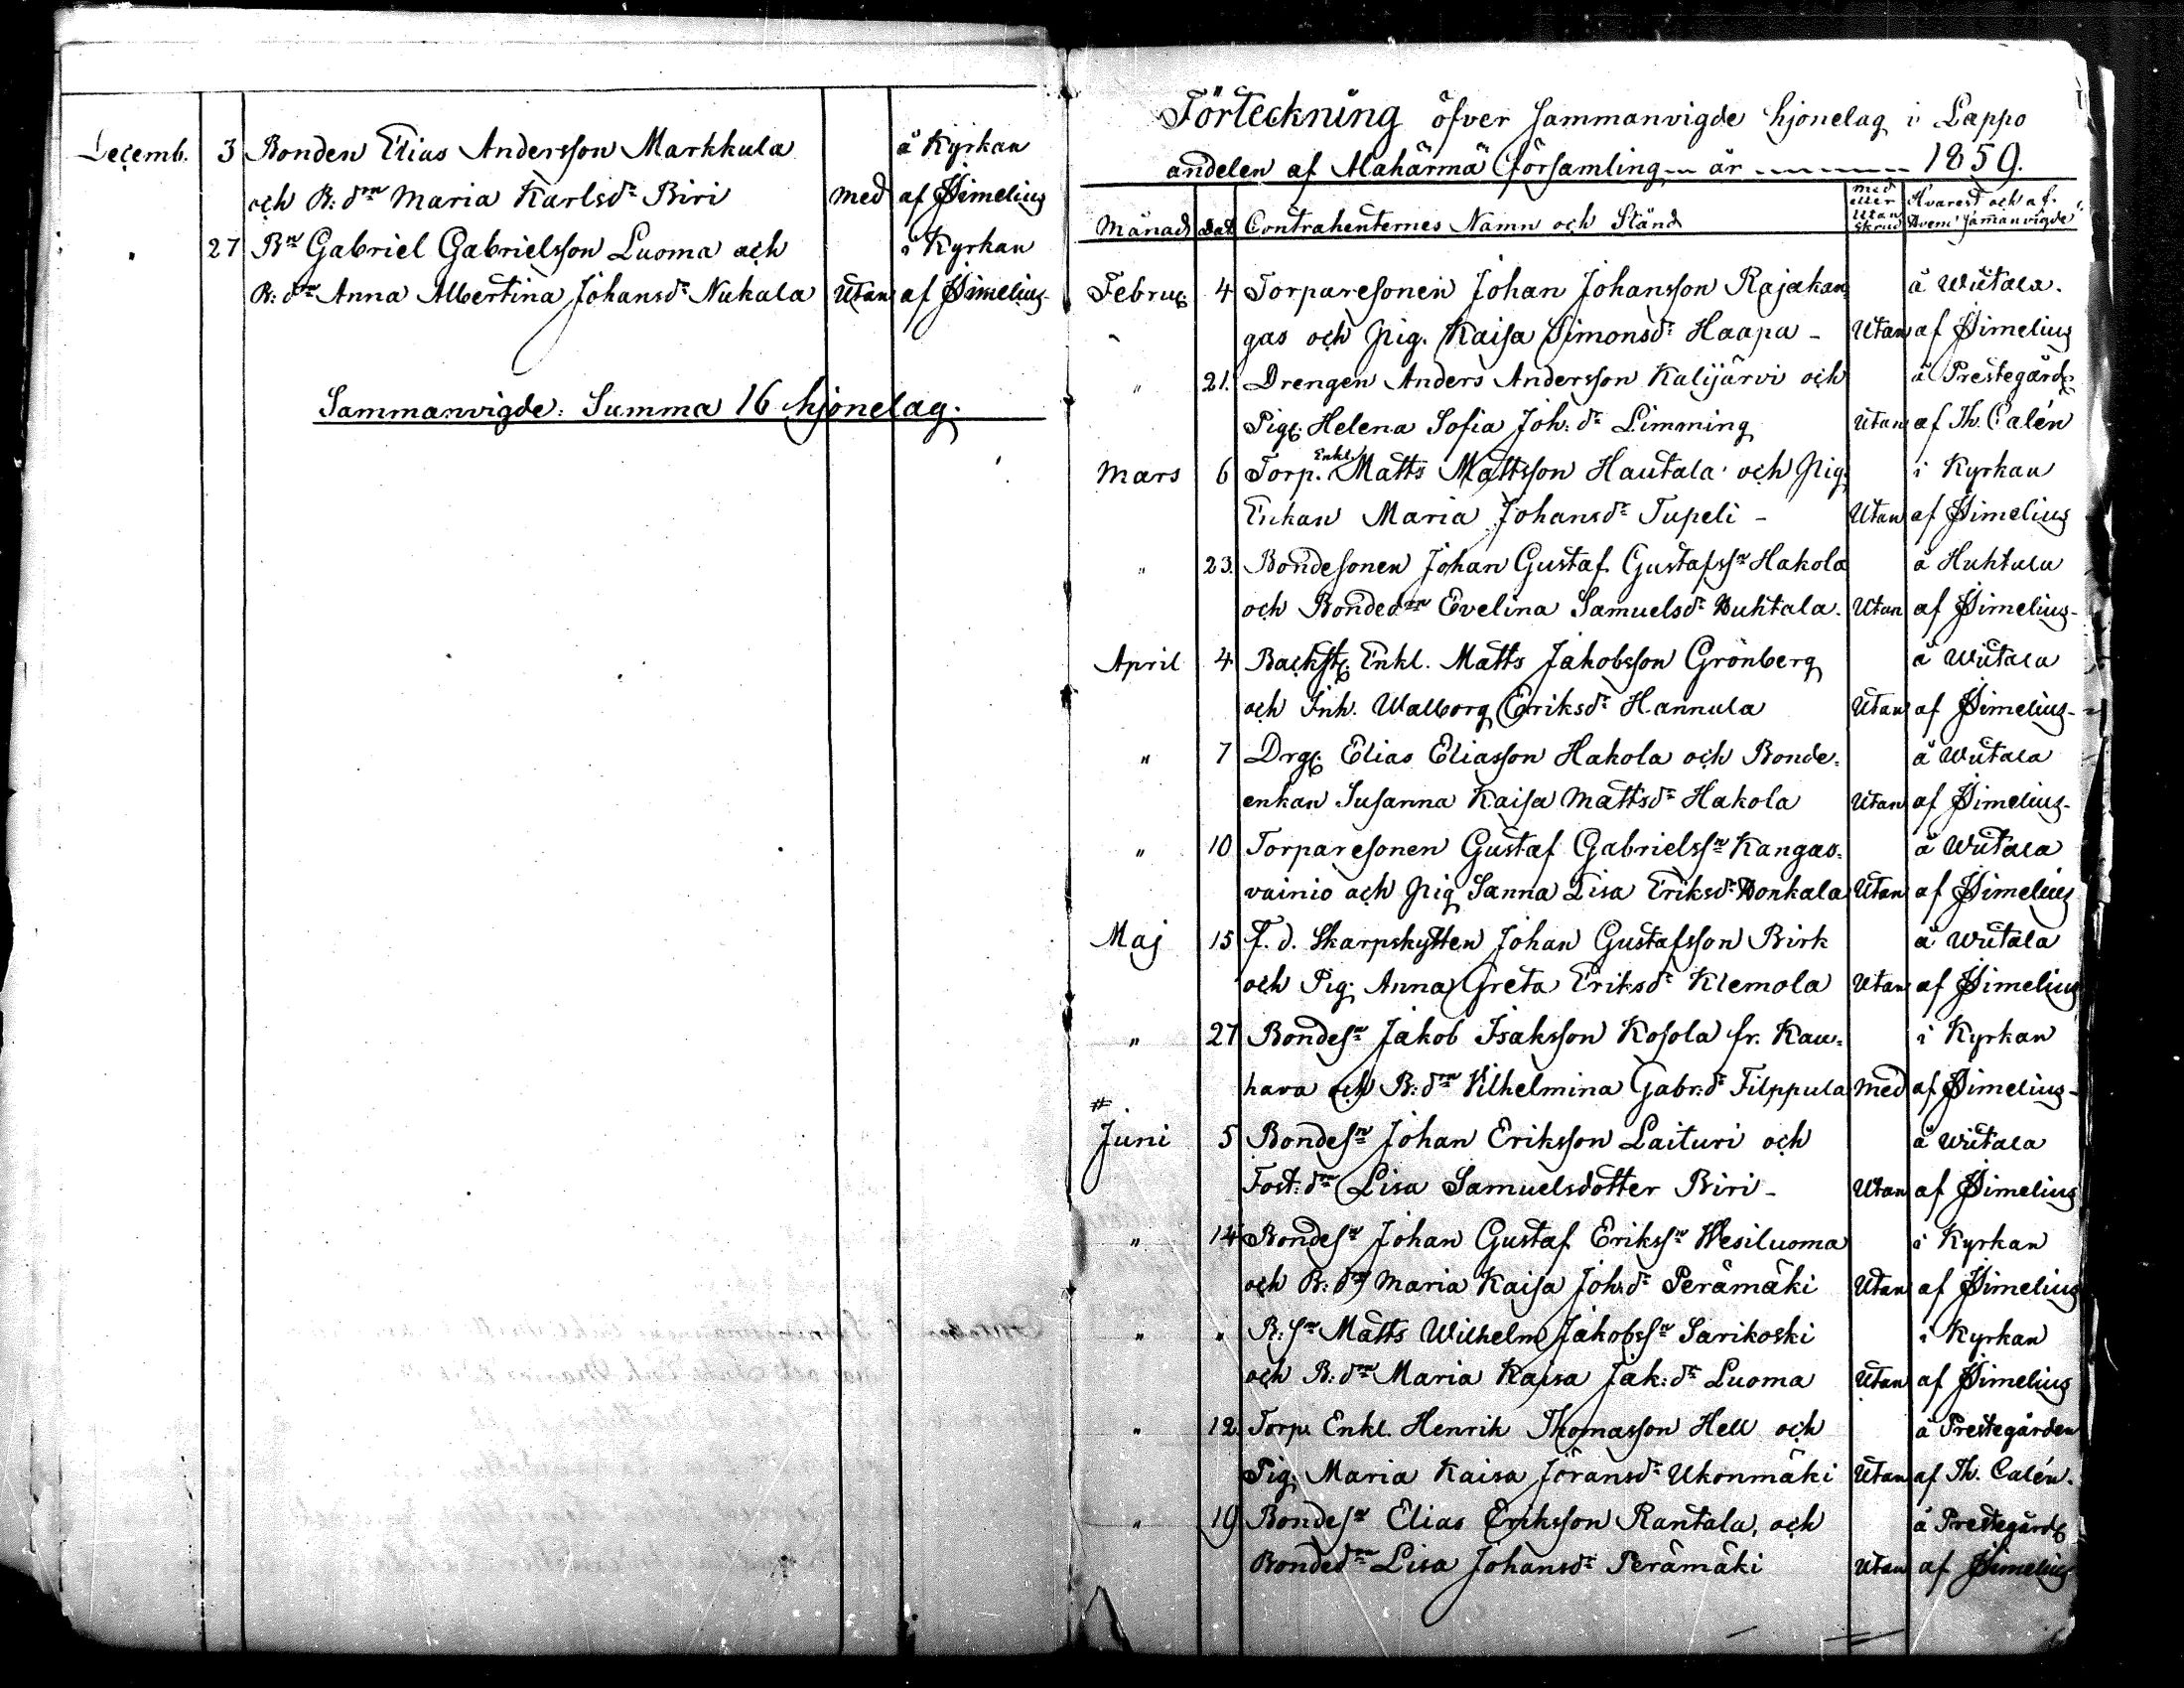 Decemb. 3 Bonden Elias Andersson Markkula å Kyrkan
och B:dr Maria Karlsdr Biri med af Simelius
" 27 Bn Gabriel Gabrielsson Luoma och i Kyrkan
B:dr Anna Albertina Johansdr Nukala Utan af Simelius
Sammanvigde: Summa 16 hjonelag.
Förteckning öfver Sammanvigde hjonelag i Lappo
andelen af Alahärmä församling år 1859.
Månad Dat Contrahenternes Namn och Stånd med eller Utan skrud Hvarest och af Hvem Samanvigde
Februar. 4 Torparesonen Johan Johansson Rajakan- å Wiitala.
" gas och Pig. Kaisa Simonsdr Haapa - Utan af Simelius
" 21. Drengen Anders Andersson Kalijärvi och å Prestegård.
Pig. Helena Sofia Joh:dr Limming Utan af Th. Calén
Mars 6 Torp. Enkl. Matts Mattsson Hautala och Pig. i Kyrkan
Enkan Maria Johansdr Tupeli - Utan af Simelius
" 23. Bondesonen Johan Gustaf Gustafssn Hakola å Huhtala
och Bondedr Evelina Samuelsdr Huhtala. Utan af Simelius
April 4 Backst. Enkl. Matts Jakobsson Grönberg å Wiitala
och Inh. Walborg Eriksdr Hannula Utan af Simelius
" 7 Drg. Elias Eliasson Hakola och Bonde- å Wiitala
enkan Susanna Kaisa Mattsdr Hakola Utan af Simelius
" 10 Torparesonen Gustaf Gabrielssn Kangas- å Wiitala
vainio och Pig Sanna Lisa Eriksdr Honkala Utan af Simelius
Maj 15 f. d. Skarpskytten Johan Gustafsson Birk å Wiitala
och Pig. Anna Greta Eriksdr Klemola Utan af Simelius
" 27 Bondesn Jakob Isaksson Kosola fr. Kau- i Kyrkan
hava och B:dr Vilhelmina Gabr:dr Filppula med af Simelius
#
Juni 5 Bondesn Johan Eriksson Laituri och å Wiitala
Fost:dr Lisa Samuelsdotter Biri - Utan af Simelius
" 14 Bondesn Johan Gustaf Erikssn Wesiluoma i Kyrkan
och B:dr Maria Kaisa Joh:dr Perämäki Utan af Simelius
" " B:sn Matts Wilhelm Jakobssn Sarikoski i Kyrkan
och B:dr Maria Kaisa Jak:dr Luoma Utan af Simelius
" 12. Torp. Enkl. Henrik Thomasson Hell och å Prestegården
Pig. Maria Kaisa Jöransdr Ukonmäki Utan af Th. Calén.
" 19 Bondesn Elias Eriksson Rantala, och å Prestegård.
Bondedr Lisa Johansdr Perämäki Utan af Simelius